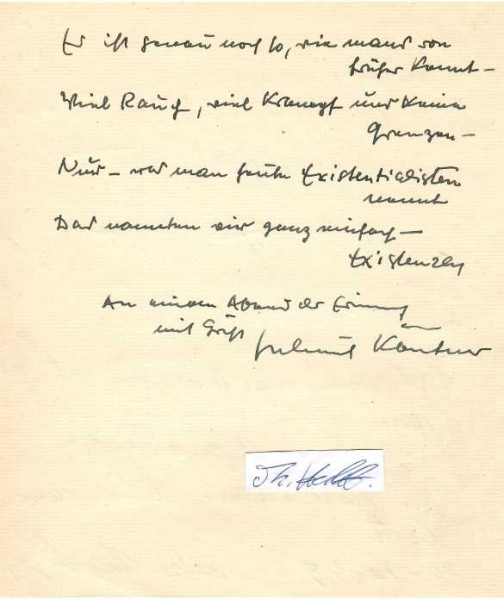 Es ist genau noch so, wie man's von
früher kennt —
Viel Rauch, viel Krampf und keine
Grenzen —
Nur — was man heute Existentialisten
nennt
Das nannten wir ganz einfach —
Existenzen
An einem Abend der Erinnerung
mit Grüß
Helmut Käutner